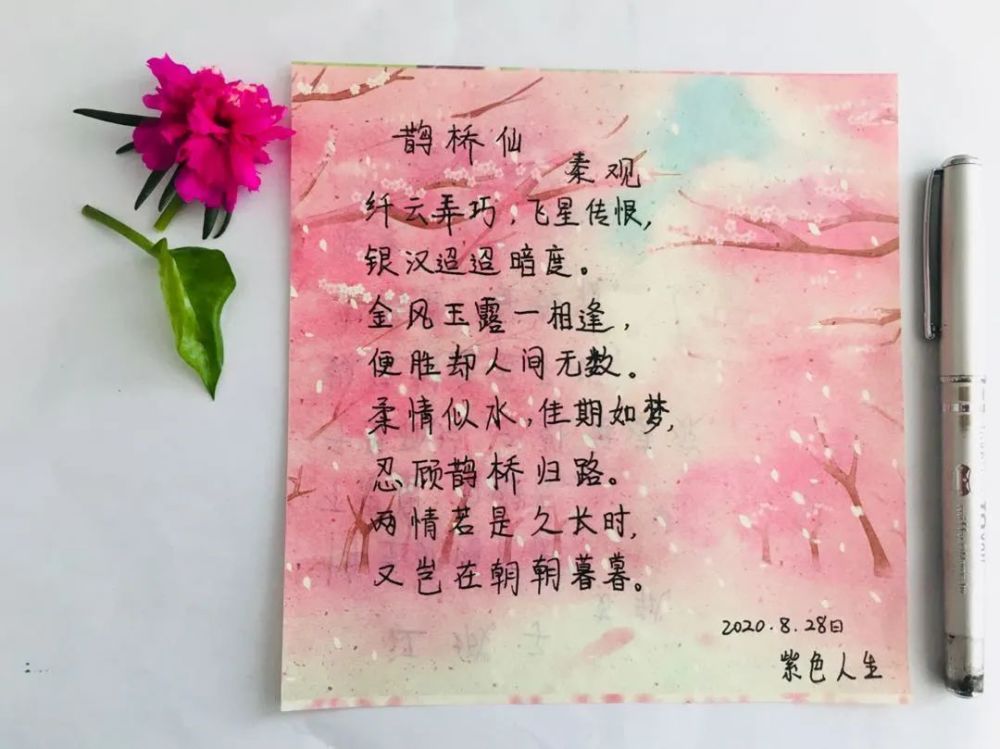 鹊桥仙
秦观
纤云弄巧，飞星传恨，
银汉迢迢暗度。
金风玉露一相逢，
便胜却人间无数。
柔情似水，佳期如梦，
忍顾鹊桥归路。
两情若是久长时，
又岂在朝朝暮暮。
2020.8.28日
紫色人生